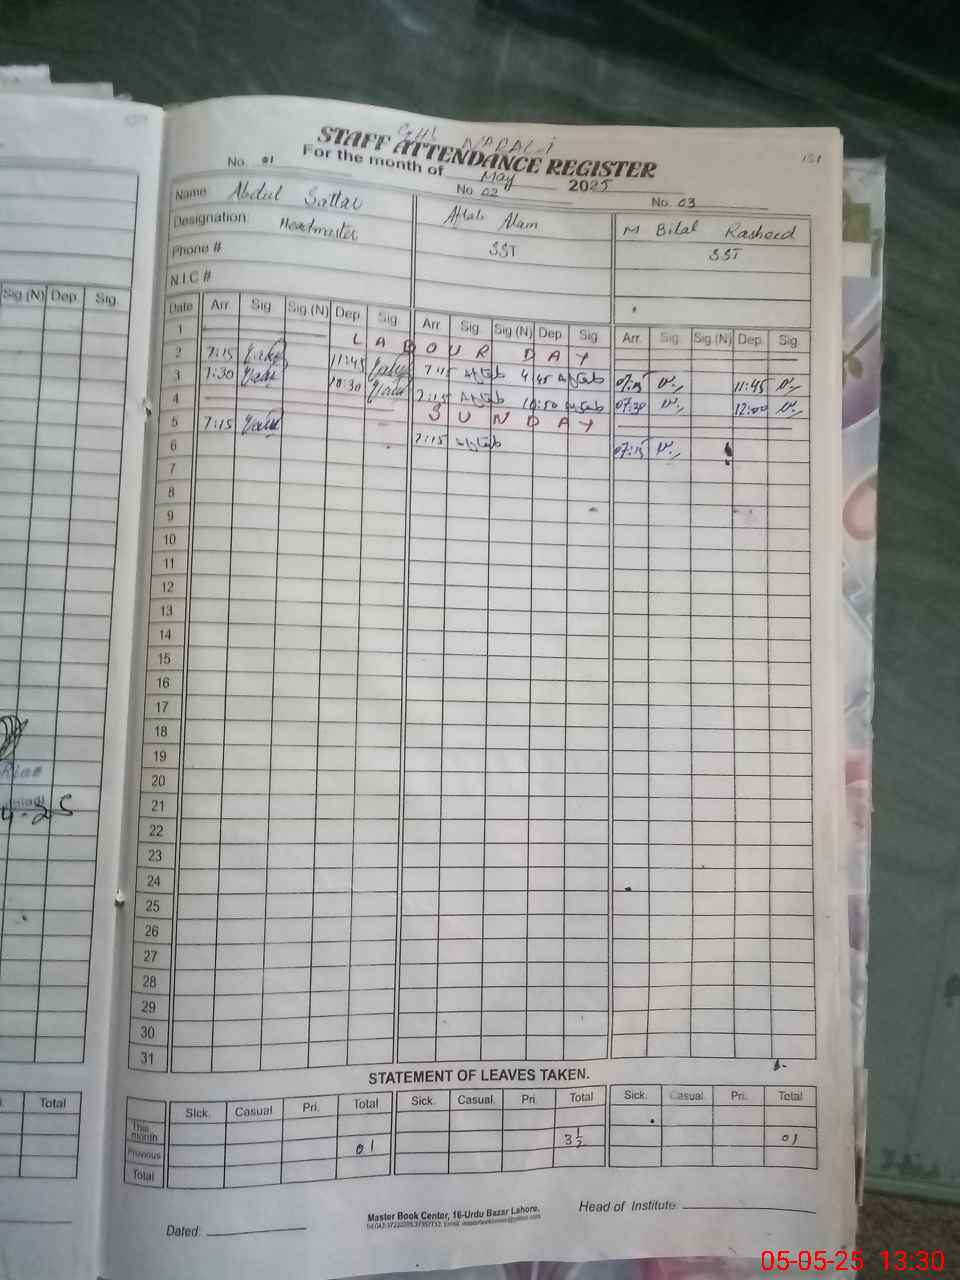 GHS NARALI
STAFF ATTENDANCE REGISTER
151
For the month of May 2025
No. 01 No 02 No. 03
Name Abdul Sattar Aftab Alam M Bilal Rasheed
Designation Headmaster SST SST
Phone #
N.I.C #
Date Arr. Sig Sig.(N) Dep Sig. Arr. Sig. Sig.(N) Dep. Sig Arr. Sig. Sig.(N) Dep. Sig.
1 LABOUR DAY
2 7:15 11:45 7:15 Aftab 4:45 Aftab 07:15 11:45
3 7:30 10:30 7:15 Aftab 10:50 Aftab 07:30 12:00
4 SUNDAY
5 7:15 7:15 Aftab 07:15
6
7
8
9
10
11
12
13
14
15
16
17
18
19
20
21
22
23
24
25
26
27
28
29
30
31
STATEMENT OF LEAVES TAKEN.
Sick. Casual Pri. Total Sick. Casual Pri. Total Sick. Casual Pri. Total
This month
Previous 01 3½ 01
Total
Dated:
Master Book Center, 16-Urdu Bazar Lahore.
Head of Institute.
Sig.(N) Dep. Sig.
Total
05-05-25 13:30